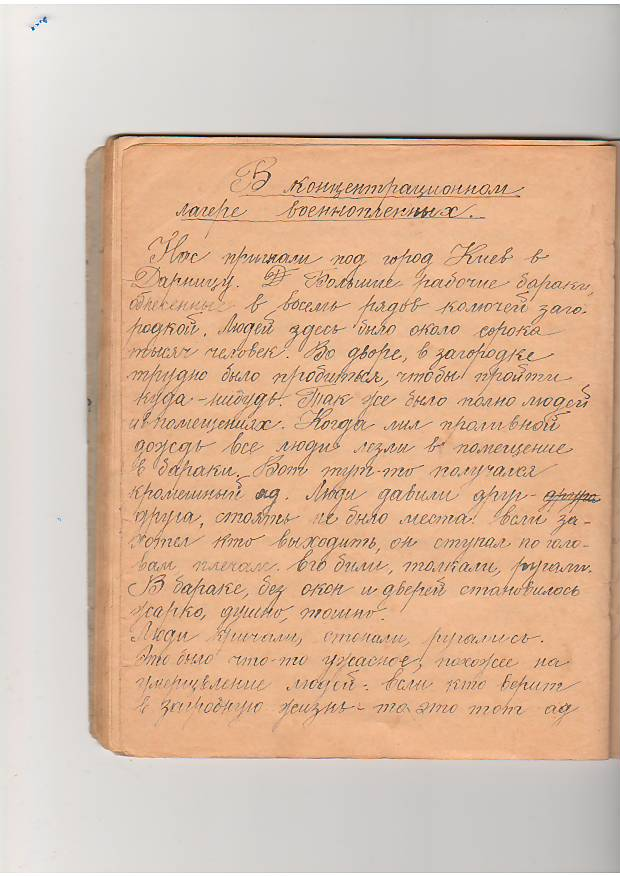 В концентрационном
лагере военнопленных.
Нас пригнали под город Киев в
Дарницу. Большие рабочие бараки,
обнесенные в восемь рядов колючей заго-
родкой. Людей здесь было около сорока
тысяч человек. Во дворе, в загородке
трудно было пробиться, чтобы пройти
куда-нибудь. Так же было полно людей
и в помещениях. Когда лил проливной
дождь все люди лезли в помещение
в бараки. Вот тут-то получался
кромешный ад. Люди давили друг- друга
друга, стоять не было места. Если за-
хотел кто выходить, он ступал по голо-
вам плечам. Его били, толкали, ругали.
В бараке, без окон и дверей становилось
жарко, душно, тошно.
Люди кричали, стонали, ругались.
Это было что-то ужасное, похожее на
умерщвление людей. Если кто верит
в загробную жизнь - то это тот ад